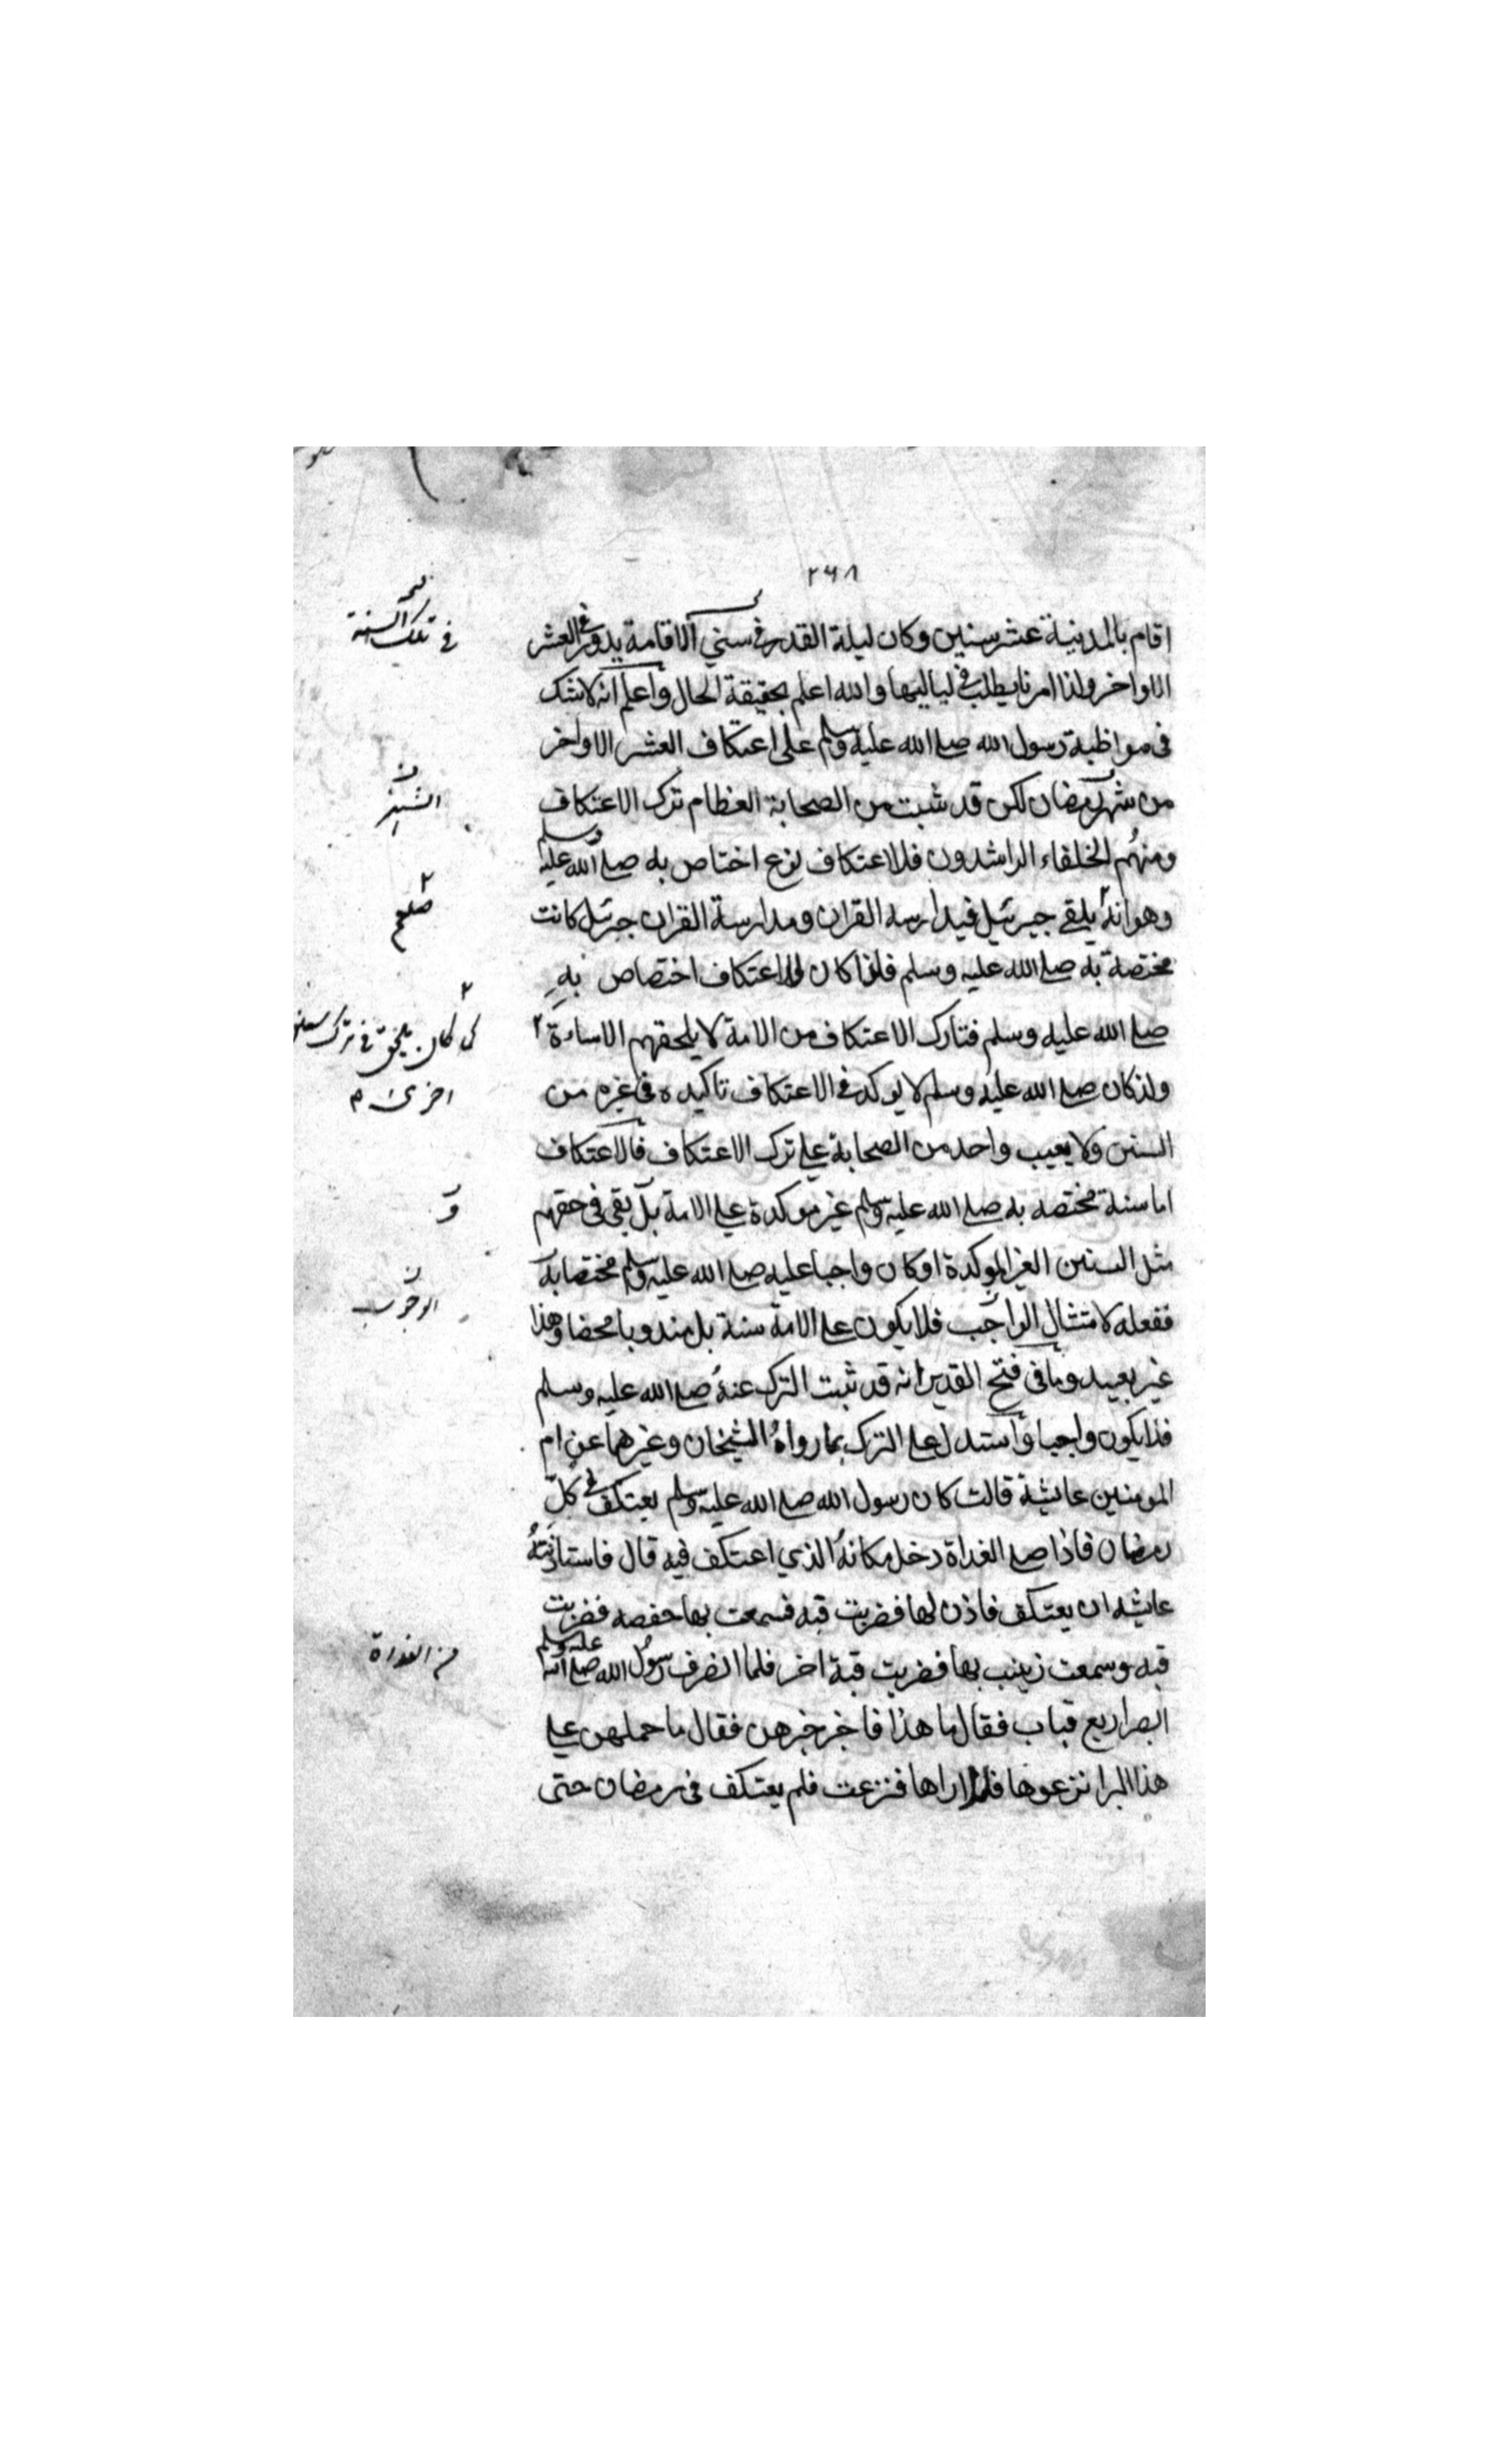 ٢٦٨
اقام بالمدينة عشر سنين وكان ليلة القدر في سني الاقامة يدور في العشر
في تلك السنة
الاواخر ولذا امرنا يطلب في لياليها والله اعلم بحقيقة الحال واعلم انه لا شك
في مواظبة رسول الله صلى الله عليه وسلم على اعتكاف العشر الاواخر
من شهر رمضان لكن قد ثبت من الصحابة العظام ترك الاعتكاف
ومنهم الخلفاء الراشدون فللاعتكاف نوع اختاص به صلى الله عليه وسلم
وهو انه يلقى جبرئيل فيدارسه القران ومدارسة القران جبرئيل كانت
صلعم
مختصة به صلى الله عليه وسلم فلذا كان للاعتكاف اختصاص به
صلى الله عليه وسلم فتارك الاعتكاف من الامة لا يلحقهم الاساءة
كما كان يلحق في ترك سنن
ولذكان صلى الله عليه وسلم لا يوكد في الاعتكاف تاكيده في غيره من
اخرى م
السنن ولا يعيب واحد من الصحابة على ترك الاعتكاف فالاعتكاف
اما سنة مختصه به صلى الله عليه وسلم غير موكدة على الامة بل بقي في حقهم
و
مثل السنن الغير الموكدة او كان واجبا عليه صلى الله عليه وسلم مختصا به
ففعله لامتثال الواجب فلا يكون على الامة سنة بل مندوبا محضا وهذا
الوجوب
غير بعيد وما في فتح القدير انه قد ثبت الترك عنه صلى الله عليه وسلم
فلا يكون واجبا واستدل على الترك بما رواه الشيخان وغيرهما عن ام
المومنين عايشة قالت كان رسول الله صلى الله عليه وسلم يعتكف في كل
رمضان فاذا صلى الغداة دخل مكانه الذي اعتكف فيه قال فاستاذنته
عايشه ان يعتكف فاذن لها فضربت قبه فسمعت بها حفصه فضربت
قبه وسمعت زينب بها فضربت قبة اخر فلما انصرف رسول الله صلى الله عليه وسلم
من الغداة
ابصر اربع قباب فقال ما هذا فاخبر خبرهن فقال ما حملهن على
هذا البر انزعوها فلا اراها فنزعت فلم يعتكف في رمضان حتى